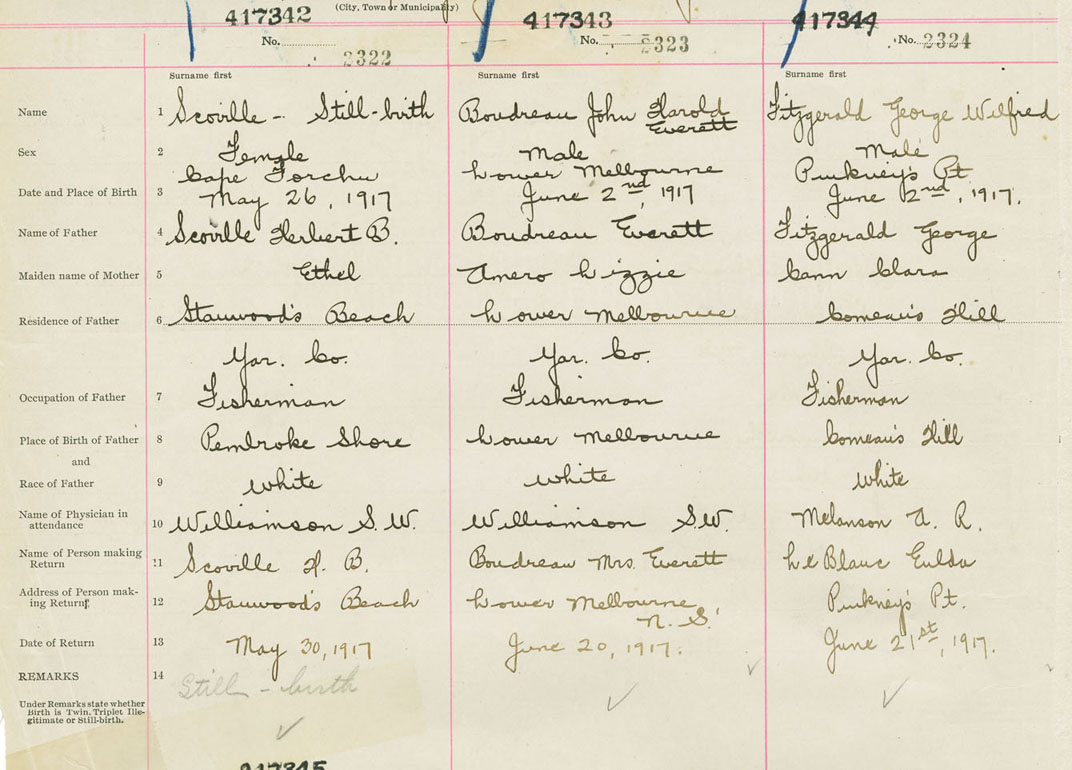 (City, Town or Municipality)
417342 417343 417344
No. 2322 No. 2323 No. 2324
Surname first Surname first Surname first
Name 1 Scoville - Still-birth Boudreau John Harold Everett Fitzgerald George Wilfred
Sex 2 Female Male Male
Cape Forchu Lower Melbourne Pinkney's Pt
Date and Place of Birth 3 May 26, 1917 June 2nd, 1917 June 2nd, 1917.
Name of Father 4 Scoville Herbert B. Boudreau Everett Fitzgerald George
Maiden name of Mother 5 Ethel Amero Lizzie Cann Clara
Residence of Father 6 Stanwood's Beach Lower Melbourne Comeau's Hill
Yar. Co. Yar. Co. Yar. Co.
Occupation of Father 7 Fisherman Fisherman Fisherman
Place of Birth of Father 8 Pembroke Shore Lower Melbourne Comeau's Hill
and
Race of Father 9 White White White
Name of Physician in
attendance 10 Williamson S. W. Williamson S.W. Melanson A. R.
Name of Person making
Return 11 Scoville H. B. Boudreau Mrs. Everett LeBlanc Eulda
Address of Person mak-
ing Return 12 Stanwood's Beach Lower Melbourne N. S. Pinkney's Pt.
Date of Return 13 May 30, 1917 June 20, 1917. June 21st, 1917.
REMARKS 14 Still-birth
Under Remarks state whether
Birth is Twin. Triplet Ille-
gitimate or Still-birth.
417345